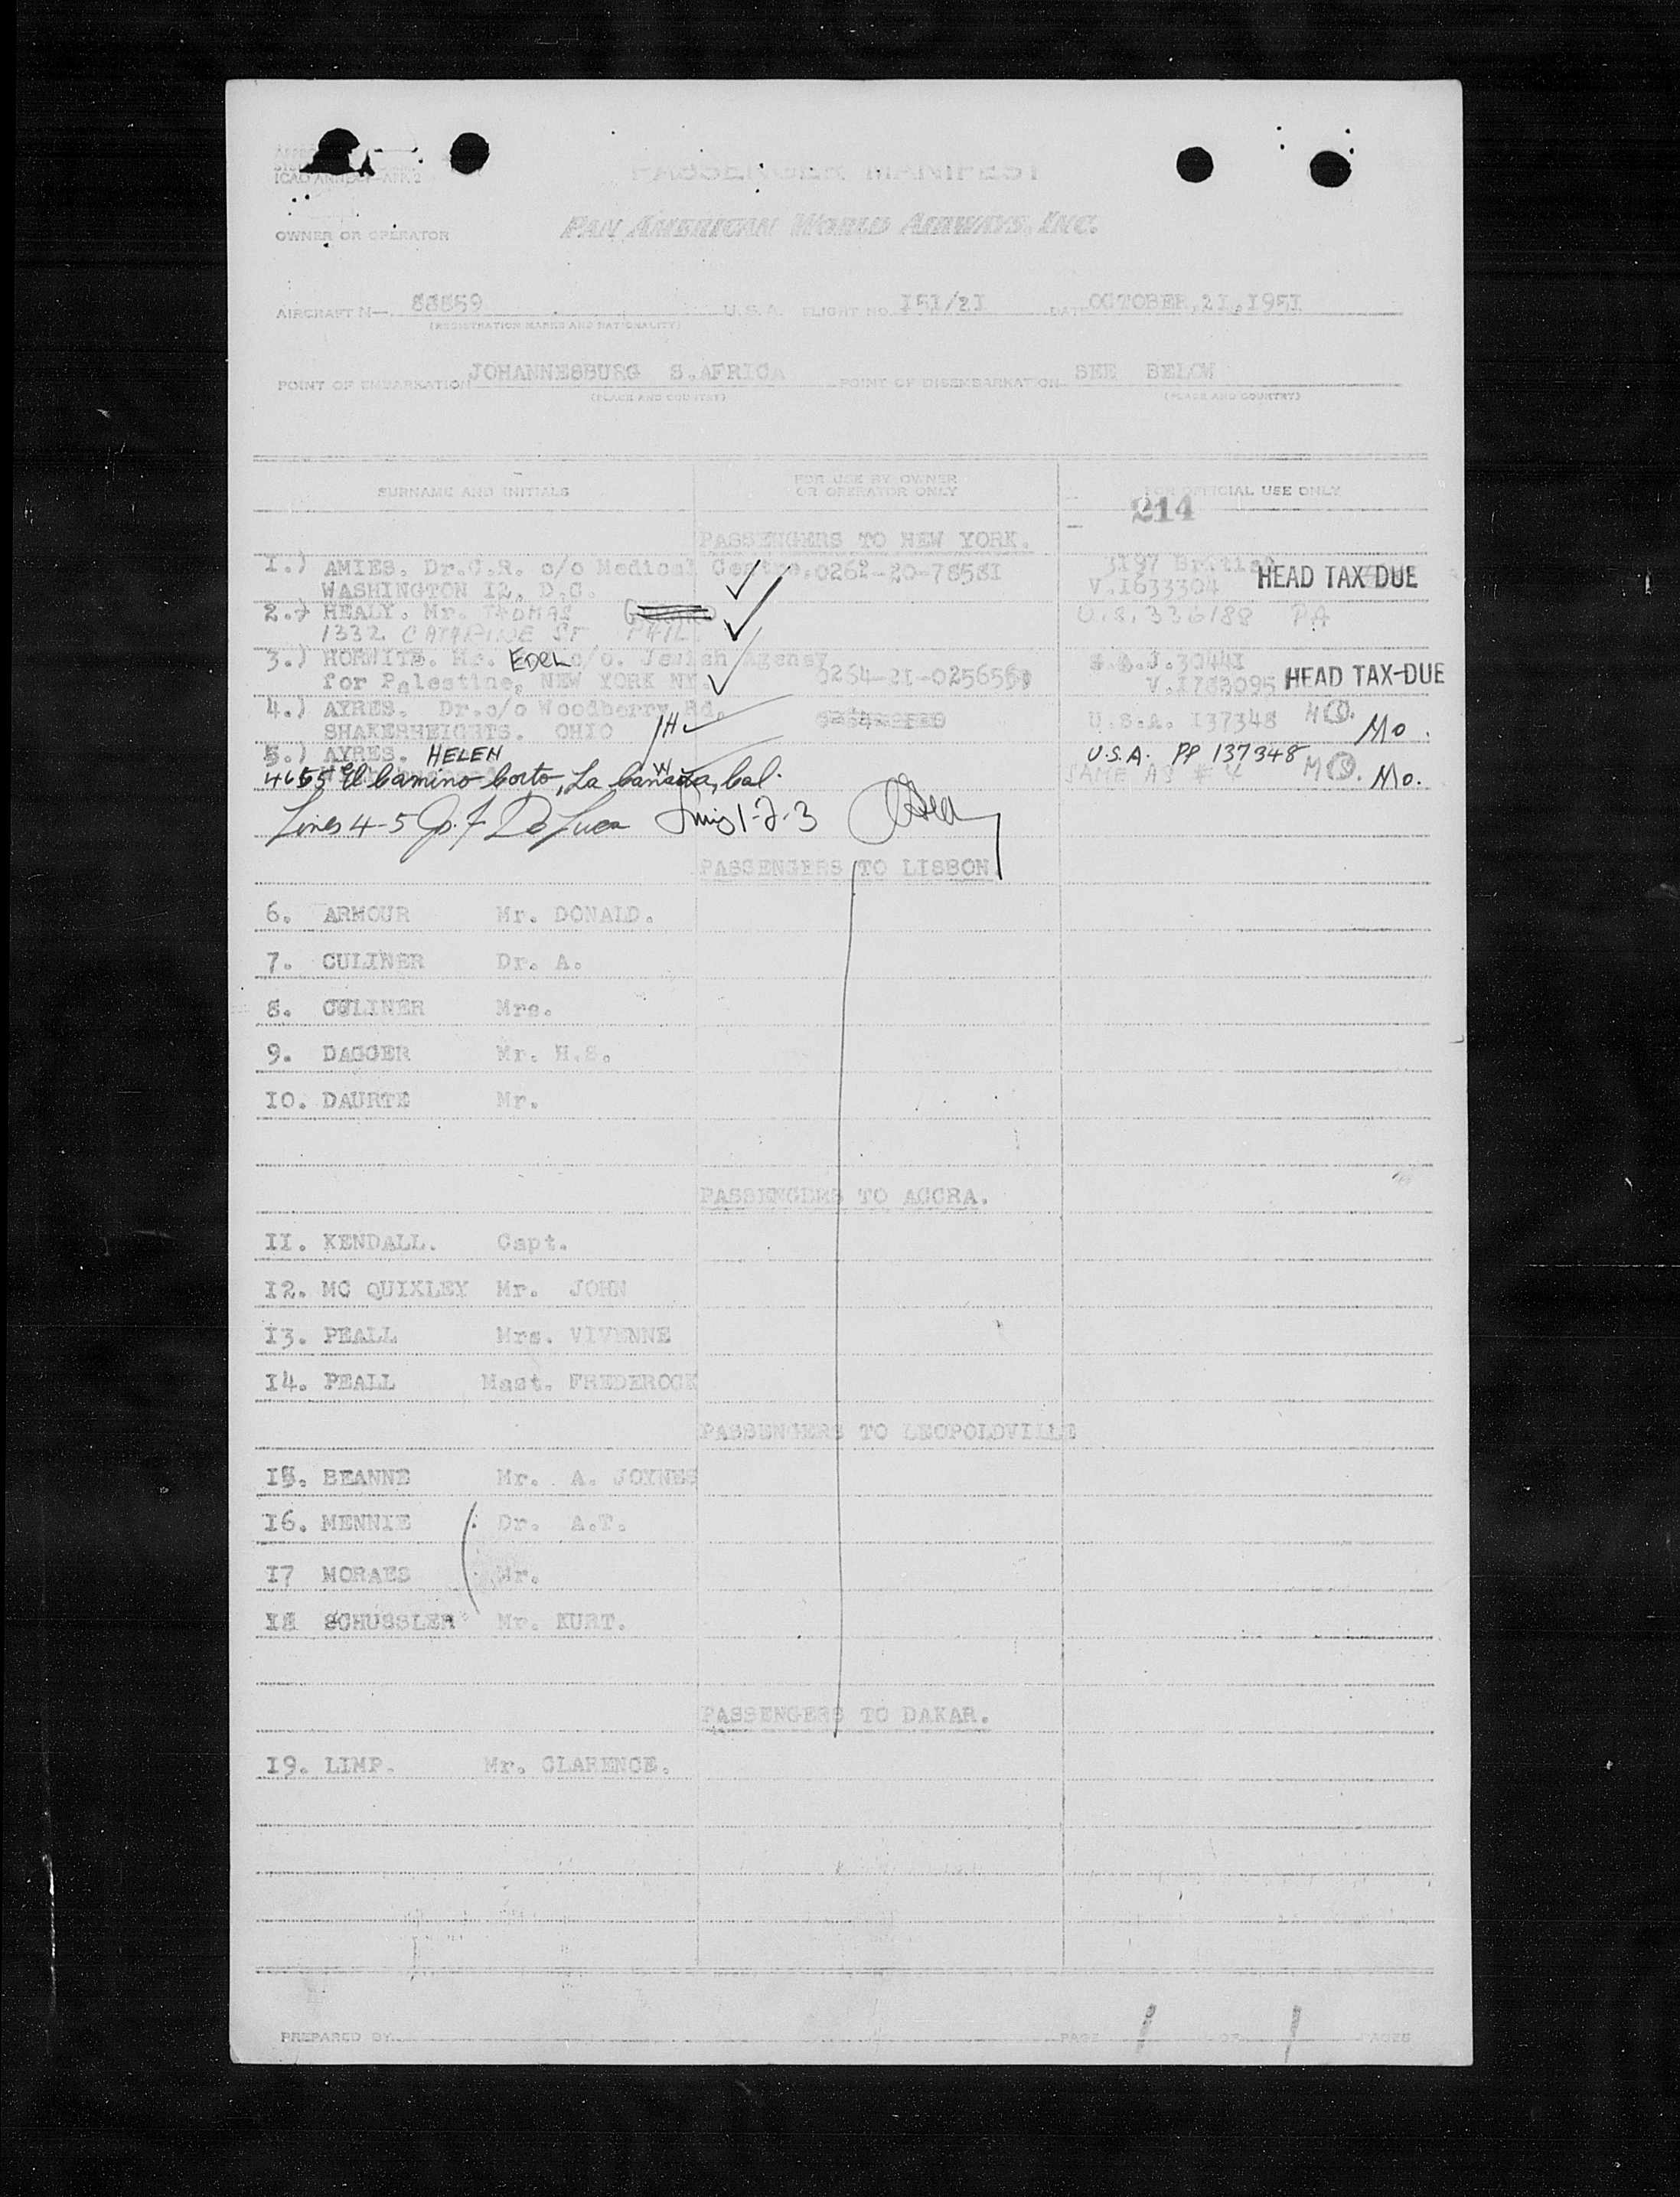 ICAO ANNEX
PASSENGER MANIFEST
OWNER OR OPERATOR PAN AMERICAN WORLD AIRWAYS, INC.
AIRCRAFT N— 88859 U.S.A. FLIGHT NO. I5I/2I DATE OCTOBER,2I,I95I
(REGISTRATION MARKS AND NATIONALITY)
POINT OF EMBARKATION JOHANNESBURG S.AFRICA POINT OF DISEMBARKATION SEE BELOW
(PLACE AND COUNTRY) (PLACE AND COUNTRY)
SURNAME AND INITIALS FOR USE BY OWNER OR OPERATOR ONLY FOR OFFICIAL USE ONLY
214
PASSENGERS TO NEW YORK.
I.) AMIES. Dr.C.R. c/o Medical Centre. 0262-20-7858I 3I97 British
WASHINGTON I2. D.C. V.I633304 HEAD TAX DUE
2.) HEALY. Mr. THOMAS U.S. 336188 PA
1332 CATHARINE ST PHIL.
3.) HORWITZ. Mr. EDEL c/o. Jewish Agency S.A.J.3044I
for Palestine, NEW YORK NY. 0264-2I-025656 V.I763095 HEAD TAX-DUE
4.) AYRES. Dr.c/o Woodberry Rd, U.S.A. I37348
SHAKERHEIGHTS. OHIO 1H Mo.
5.) AYRES. HELEN U.S.A. PP 137348
4655 El Camino Corto, La Canada, Cal. SAME AS # 4 Mo.
Lines 4-5 Jos. F De Luca Lines 1-2-3
PASSENGERS TO LISBON.
6. ARMOUR Mr. DONALD.
7. CULINER Dr. A.
8. CULINER Mrs.
9. DAGGER Mr. H.S.
IO. DAURTE Mr.
PASSENGERS TO ACCRA.
II. KENDALL. Capt.
I2. MC QUIXLEY Mr. JOHN
I3. PEALL Mrs. VIVENNE
I4. PEALL Mast. FREDEROCK
PASSENGERS TO LEOPOLDVILLE
I5. BEANNE Mr. A. JOYNES
I6. MENNIE Dr. A.T.
I7 MORAES Mr.
I8 SCHUSSLER Mr. KURT.
PASSENGERS TO DAKAR.
I9. LIMP. Mr. CLARENCE.
PREPARED BY PAGE 1 OF 1 PAGES